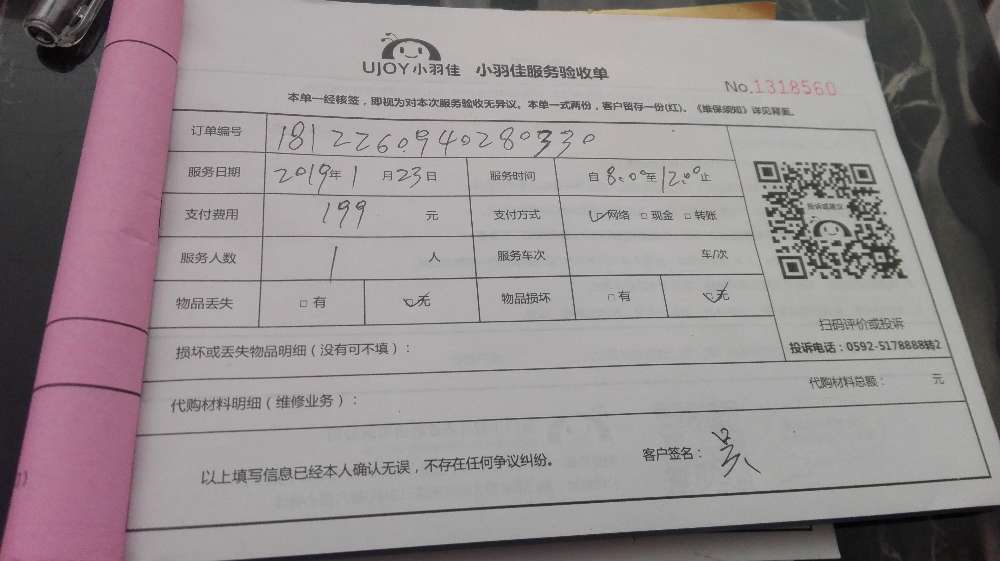 UJOY小羽佳 小羽佳服务验收单
No.1318560
本单一经核签，即视为对本次服务验收无异议。本单一式两份，客户留存一份(红)。《维保须知》详见背面。
订单编号 1812260940280330
服务日期 2019年1月23日 服务时间 自8:00至12:00止
支付费用 199元 支付方式 ☑网络 □现金 □转账
服务人数 1人 服务车次 车/次
物品丢失 □有 ☑无 物品损坏 □有 ☑无
投诉或建议
扫码评价或投诉
投诉电话：0592-5178888转2
损坏或丢失物品明细（没有可不填）：
代购材料明细（维修业务）： 代购材料总额： 元
以上填写信息已经本人确认无误，不存在任何争议纠纷。 客户签名：吴